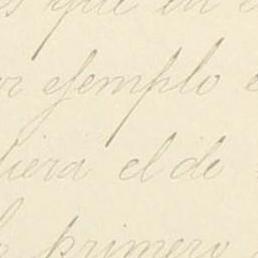 que en
ejemplo
diera el de
primero